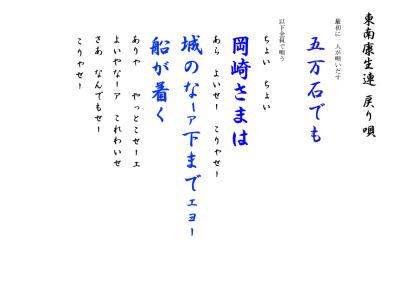 東南康生連 戻り唄
最初に一人が唄いだす
五万石でも
以下全員で唄う
ちょい ちょい
岡崎さまは
あら よいせー こりゃせー
城のなーァ下までェヨー
船が着く
ありゃ やっとこせーエ
よいやなーア これわいせ
さあ なんでもせー
こりゃせー